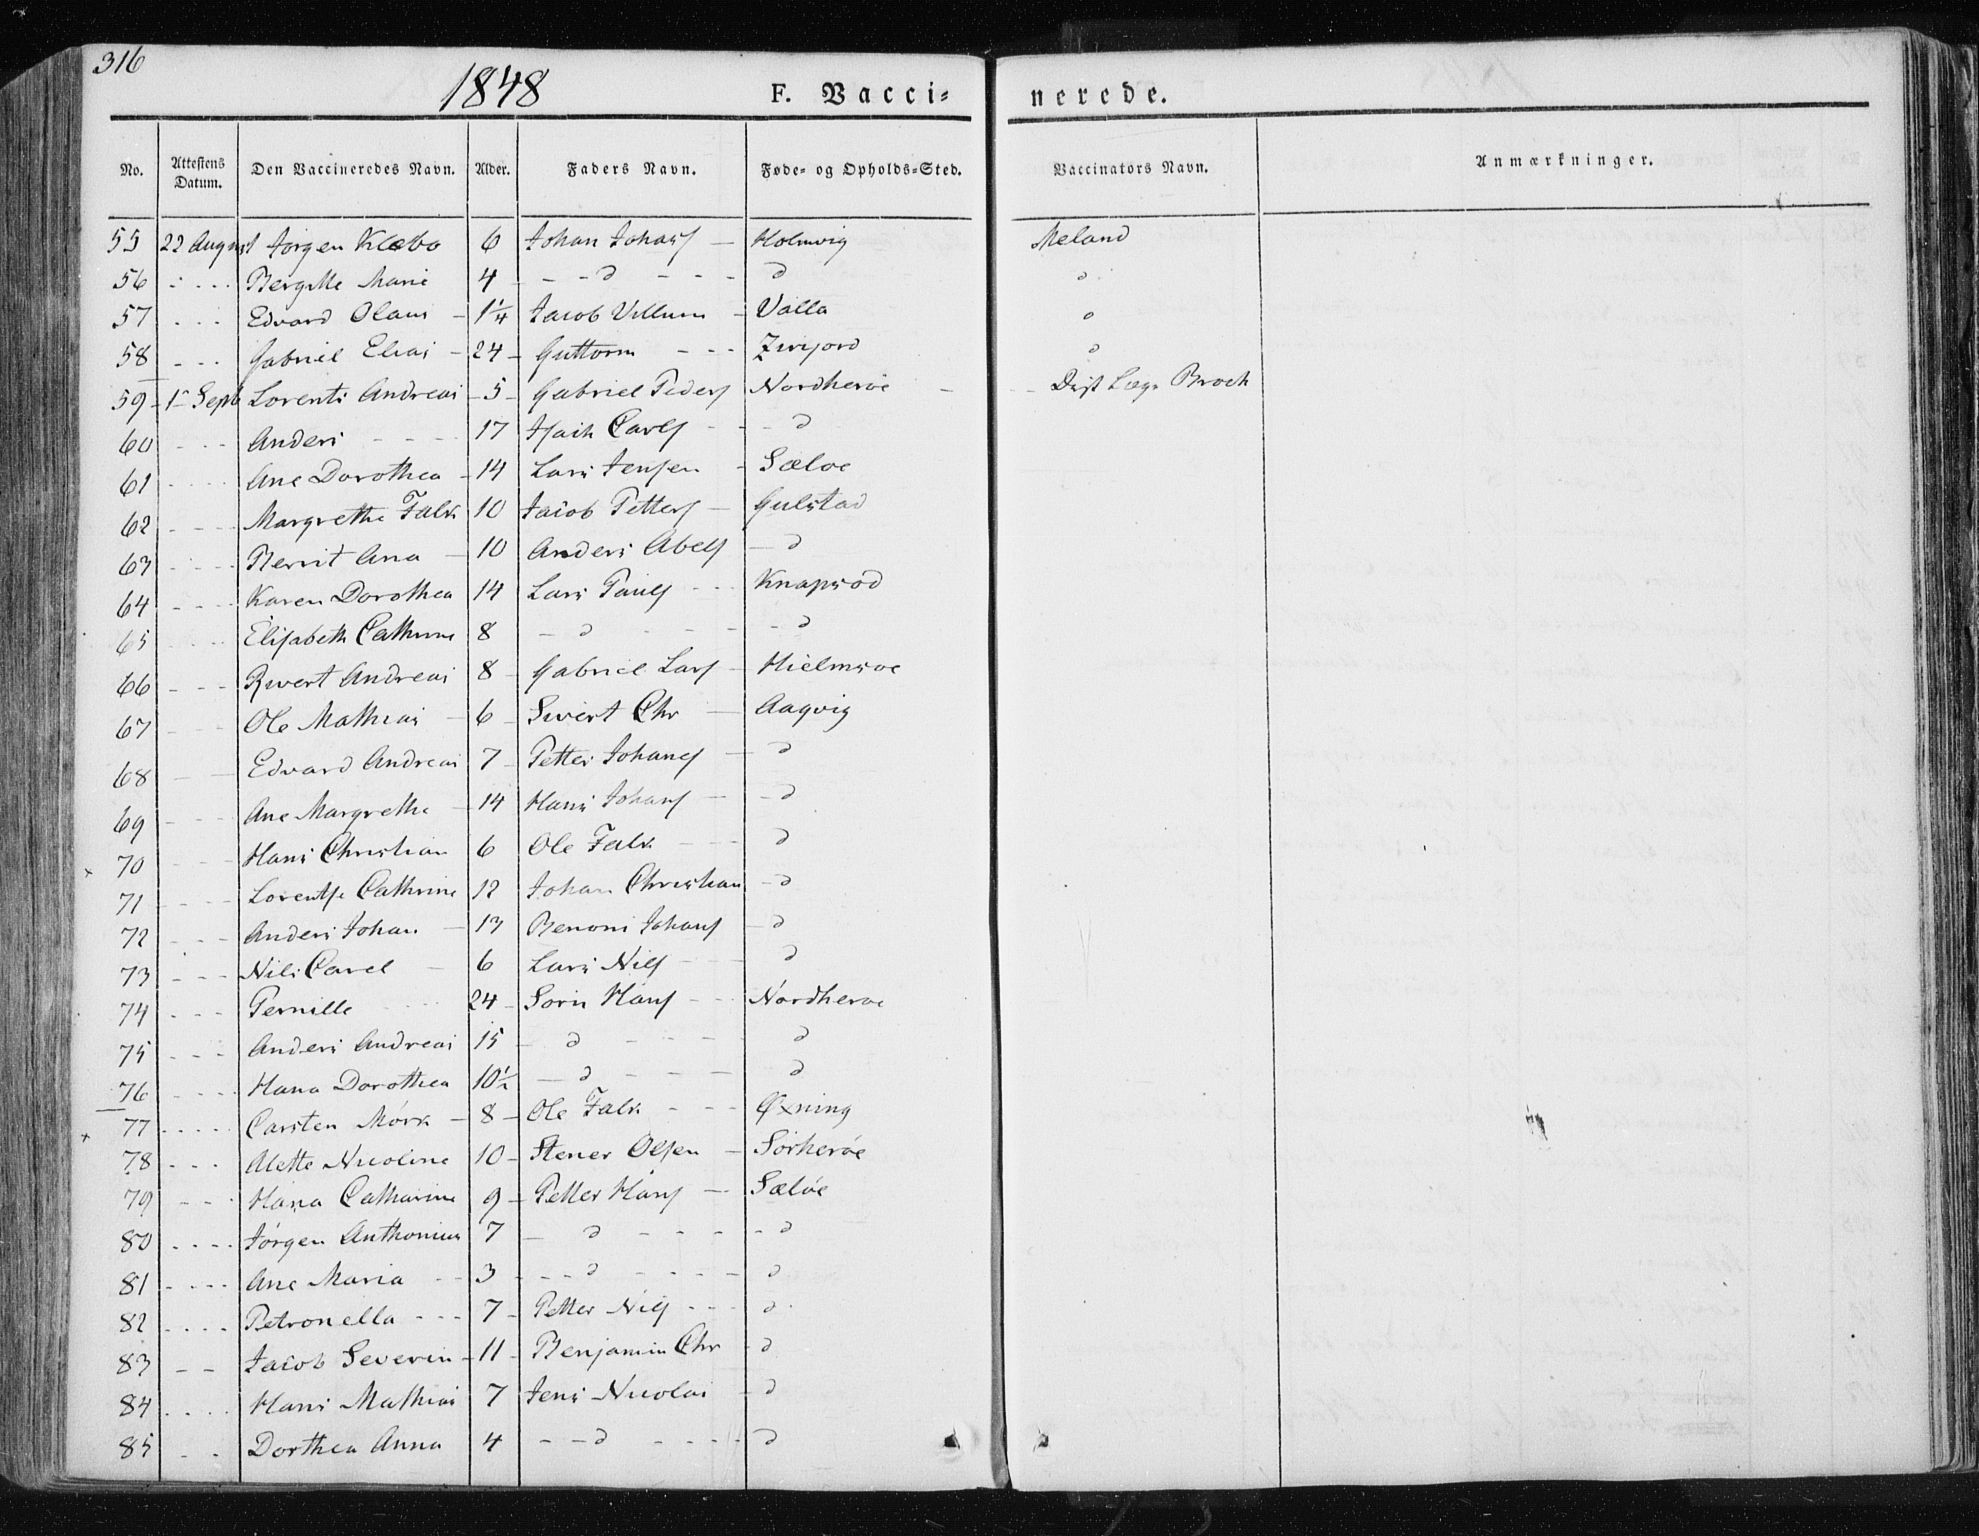 316
1848 F. Vacci= nerede.
No. Attestens Datum. Den Vaccineredes Navn. Alder. Faders Navn. Føde- og Opholds=Sted. Vaccinators Navn. Anmærkninger.
55 22 August Jørgen Klæbo 6 Johan Johans – Holmvig Meland
56 - - - Bergitte Marie 4 - - d - - - d d
57 - - - Edvard Olaus – 1¼ Jacob Villum – Valla d
58 - - - Gabriel Elias – 24 – Guttorm - - - d
59 – 1ste Sept Lorents Andreas – 5 – Gabriel Peders Nordherøe – – Dist Læge Broch
60 - - - Anders - - - 17 Isach Carls - - - d
61 - - - Ane Dorothea – 14 Lars Jensen - Sæløe
62 - - - Margrethe Falk 10 Jacob Petters – Gulstad
63 - - - Berrit Ana – 10 Anders Abels – d
64 - - - Karen Dorothea 14 Lars Pauls - - - Knapsød
65 - - - Elisabeth Cathrine 8 – d - - - - d
66 - - - Sivert Andreas 8 – Gabriel Lars – Hielmsøe
67 - - Ole Mathias – 6 – Sivert Chr – Aagvig
68 - - Edvard Andreas 7 – Petter Johans – d
69 - - - Ane Margrethe – 14 Hans Johans – - d
70 - - Hans Christian 6 Ole Falk - - - d
71 - - - Lorentse Cathrine 12 Johan Christian - d
72 - - - Anders Johan – 13 Benoni Johans – d
73 - - - Nils Carel – 6 Lars Nils - - - d
74 - - - Pernille - - - 24 – Sørn Hans - - - Nordherøe
75 - - - Anders Andreas 15 – d - - - d
76 - - - Hana Dorothea 10½ – d - - - d
77 - - - - Carsten Mörk – 8 – Ole Falk - - - Øxning
78 - - - Alette Nicoline 10 – Stener Olsen – Sørherøe
79 - - - Hana Catharine 9 – Petter Hans – Sæløe
80 - - - - Jørgen Anthonius 7 – d - - - - - d
81 - - - - Ane Maria - - 3 - - d - - - - d
82 - - - - Petronella - - - 7 – Petter Nils - - - d
83 - - Jacob Severin – 11 – Benjamin Chr - d
84 - - - - Hans Mathias 7 Jens Nicolai - d
85 - - Dorthea Anna 4 - - d - - - - d